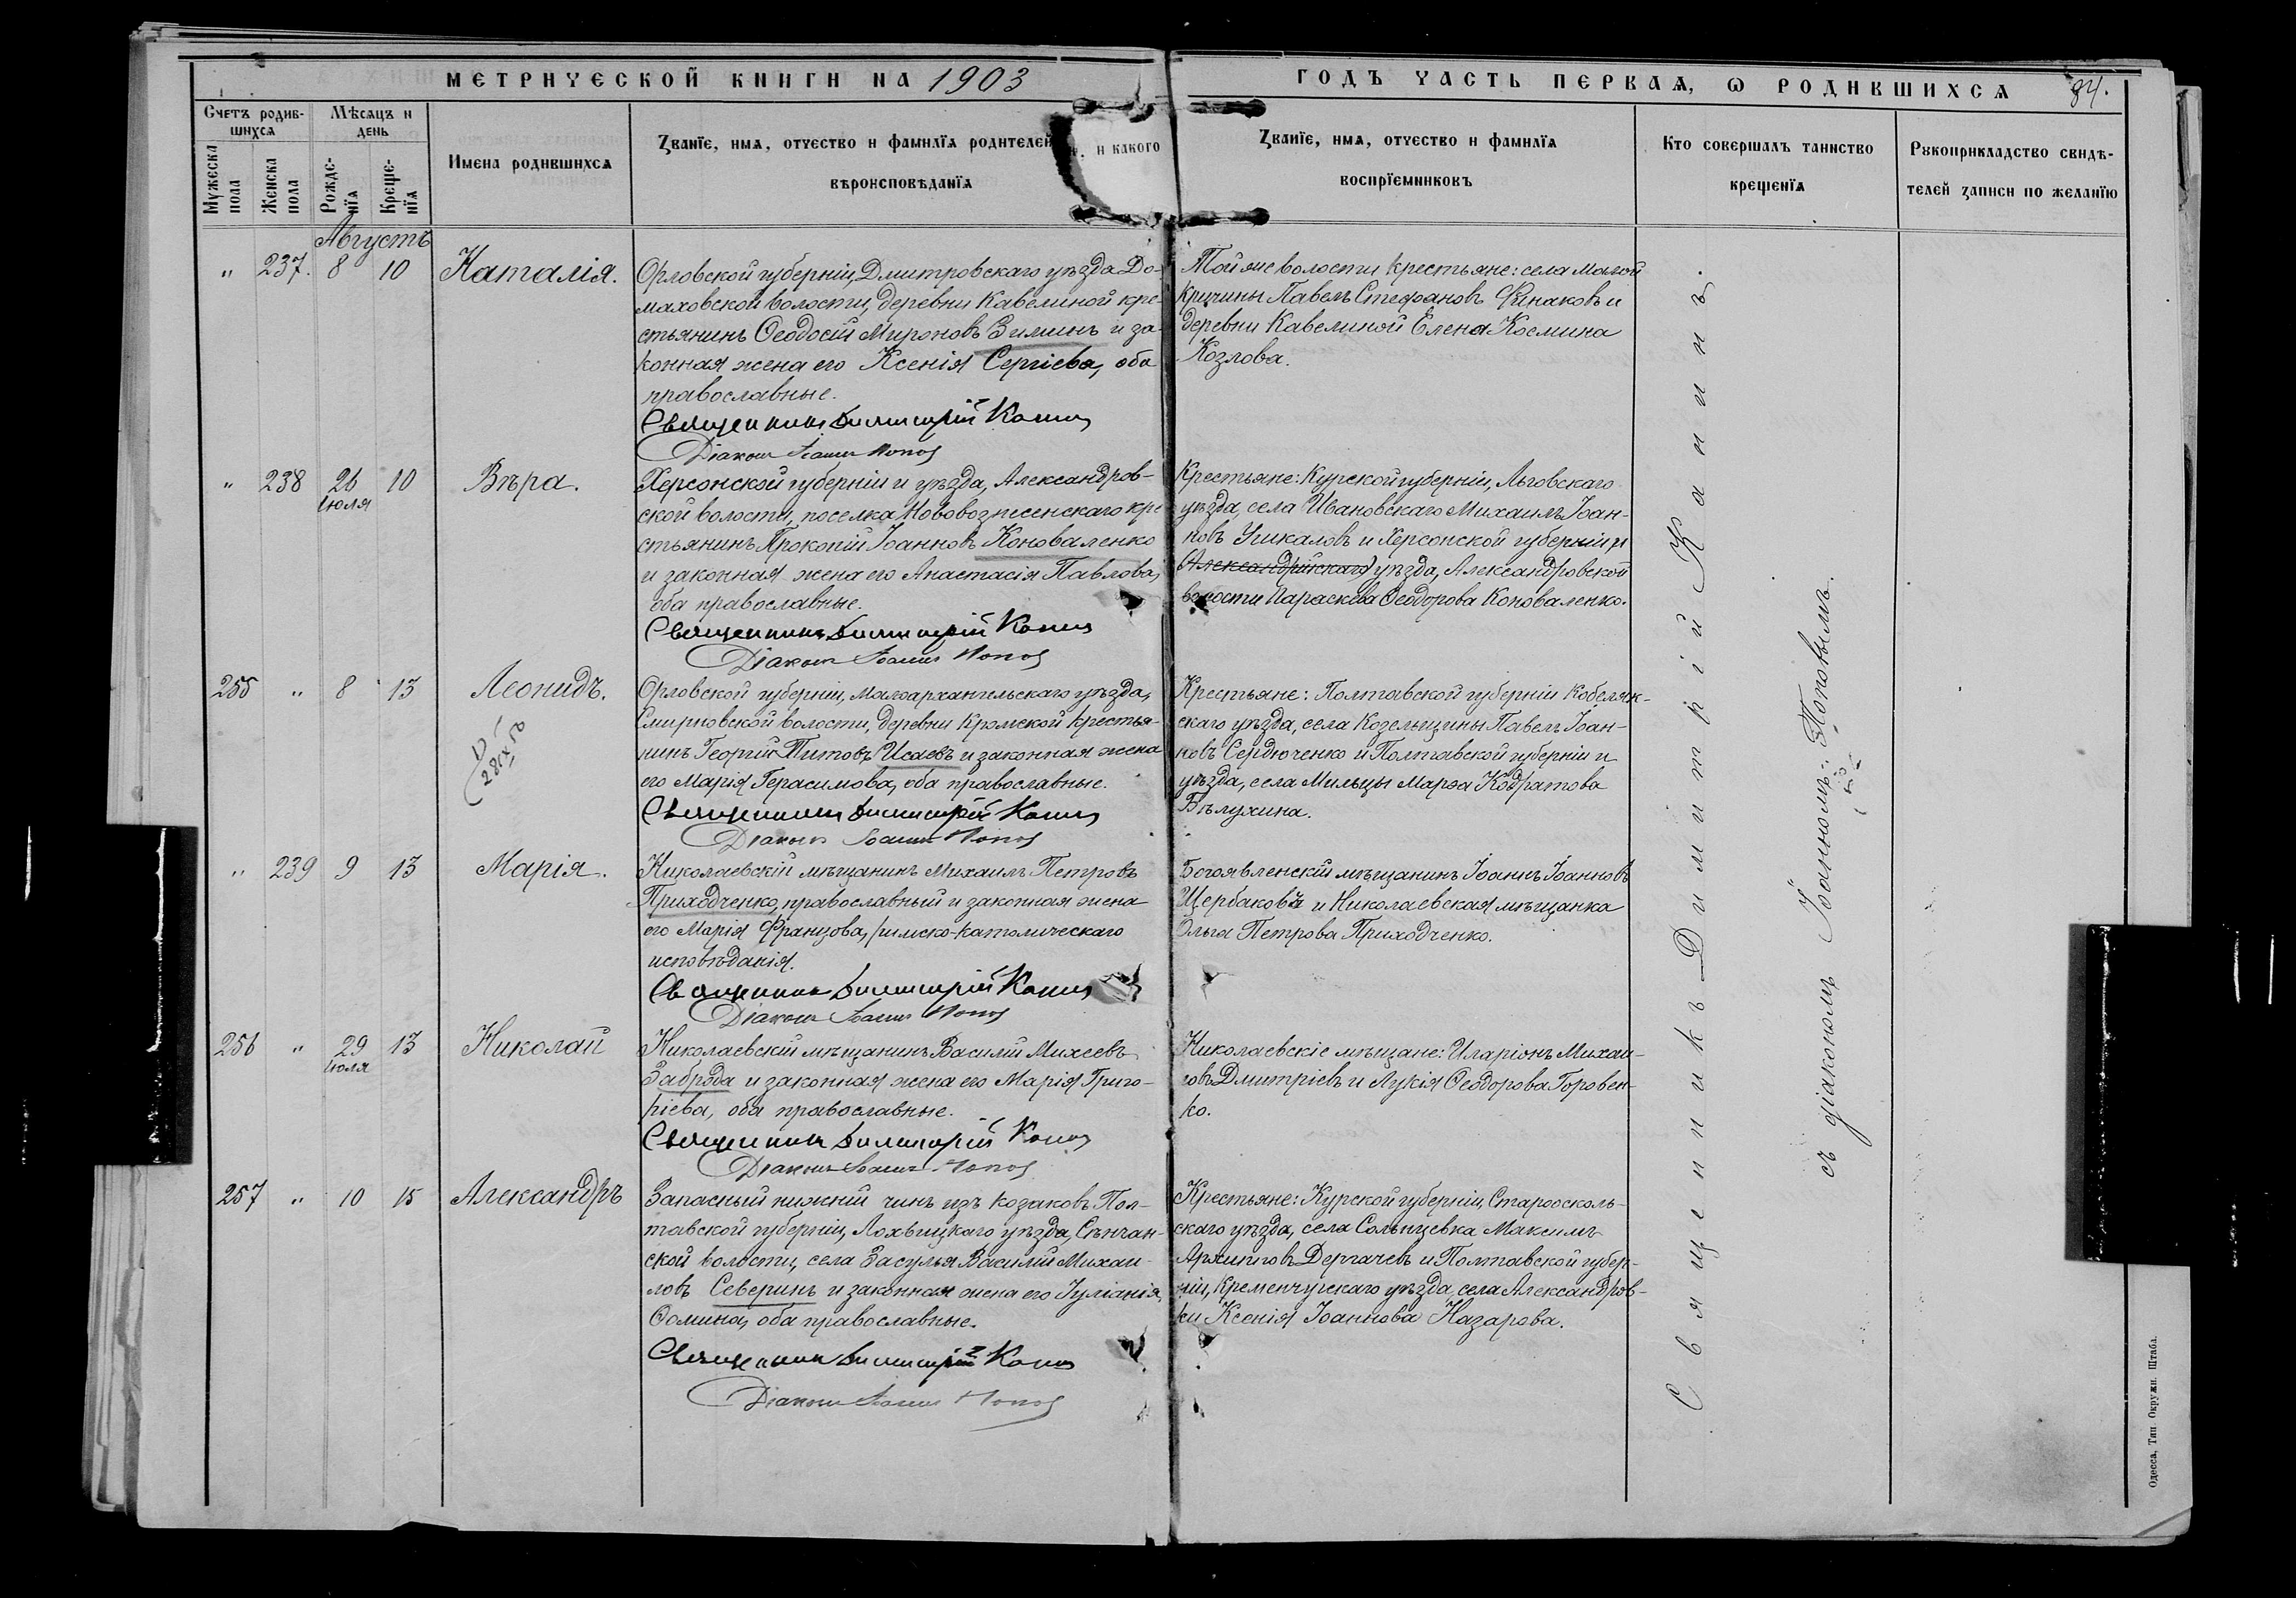 МЕТРИЧЕСКОЙ КНИГИ НА 1903
ГОДЪ ЧАСТЬ ПЕРВАЯ, Ѡ РОДИВШИХСЯ
84.
Счетъ родив-
шихся
Мѣсяцъ и
день
Мужеска
пола
Женска
пола
Рожде-
нія
Креще-
нія
Имена родившихся
Званїе, имя, отчество и фамилїя родителей
и какого
вѣроисповѣданїя
Званїе, имя, отчество и фамилїя
воспрїемниковъ
Кто совершалъ таинство
крещенїя
Рукоприкладство свидѣ-
телей записи по желанїю
Августъ
" 237. 8 10 Наталія.
Орловской губерніи, Дмитровскаго уѣзда До-
маховской волости, деревни Кавелиной кре-
стьянинъ Ѳеодосій Мироновъ Зиминъ и за-
конная жена его Ксенія Сергіева, оба
православные.
Священникъ Димитрій Канинъ
Діаконъ Іоаннъ Поповъ
Той же волости крестьяне: села Малой
Кричины Павелъ Стефановъ и
деревни Кавелиной Елена Космина
Козлова.
" 238 26 10 Вѣра.
Іюля
Херсонской губерніи и уѣзда, Александров-
ской волости, поселка Нововознесенскаго кре
стьянинъ Прокопій Іоанновъ Коноваленко
и законная жена его Анастасія Павлова,
оба православные.
Священникъ Димитрій Канинъ
Діаконъ Іоаннъ Поповъ
Крестьяне: Курской губерніи, Льговскаго
уѣзда, села Ивановскаго Михаилъ Іоан-
новъ Ушкаловъ и Херсонской губерніи и
Александрійскаго уѣзда, Александровской
волости Параскева Ѳеодорова Коноваленко.
255 " 8 13 Леонидъ.
Орловской губерніи, Малоархангельскаго уѣзда,
Смирновской волости, деревни Кромской крестья-
нинъ Георгій Титовъ Исаевъ и законная жена
его Марія Герасимова, оба православные.
Священникъ Димитрій Канинъ
Діаконъ Іоаннъ Поповъ
Крестьяне: Полтавской губерніи Кобеляк-
скаго уѣзда, села Козельщины Павелъ Іоан-
новъ Сердюченко и Полтавской губерніи и
уѣзда, села Мильцы Марѳа Кодратова
Бѣлухина.
" 239 9 13 Марія.
Николаевскій мѣщанинъ Михаилъ Петровъ
Приходченко, православный и законная жена
его Марія Францова, римско-католическаго
исповѣданія.
Священникъ Димитрій Канинъ
Діаконъ Іоаннъ Поповъ
Богоявленскій мѣщанинъ Іоаннъ Іоанновъ
Щербаковъ и Николаевская мѣщанка
Ольга Петрова Приходченко.
256 " 29 13 Николай
Іюля
Николаевскій мѣщанинъ Василій Михеевъ
Заброда и законная жена его Марія Григо-
ріева, оба православные.
Священникъ Димитрій Канинъ
Діаконъ Іоаннъ Поповъ
Николаевскіе мѣщане: Иларіонъ Михаи-
ловъ Дмитріевъ и Лукія Ѳеодорова Горовен-
ко.
257 " 10 15 Александръ
Запасный нижній чинъ изъ козаковъ Пол-
тавской губерніи, Лохвицкаго уѣзда, Сѣнчан-
ской волости, села Засулья Василій Михаи-
ловъ Северинъ и законная жена его Іуліанія
Ѳомина, оба православные.
Священникъ Димитрій Канинъ
Діаконъ Іоаннъ Поповъ
Крестьяне: Курской губерніи, Староосколь-
скаго уѣзда, села Сольнцевка Максимъ
Архиповъ Дергачевъ и Полтавской губер-
ніи, Кременчугскаго уѣзда, села Александров-
ки Ксенія Іоаннова Назарова.
Священникъ Димитрій Канинъ.
съ діакономъ Іоанномъ Поповымъ.
Одесса, Тип. Окружн. Штаба.